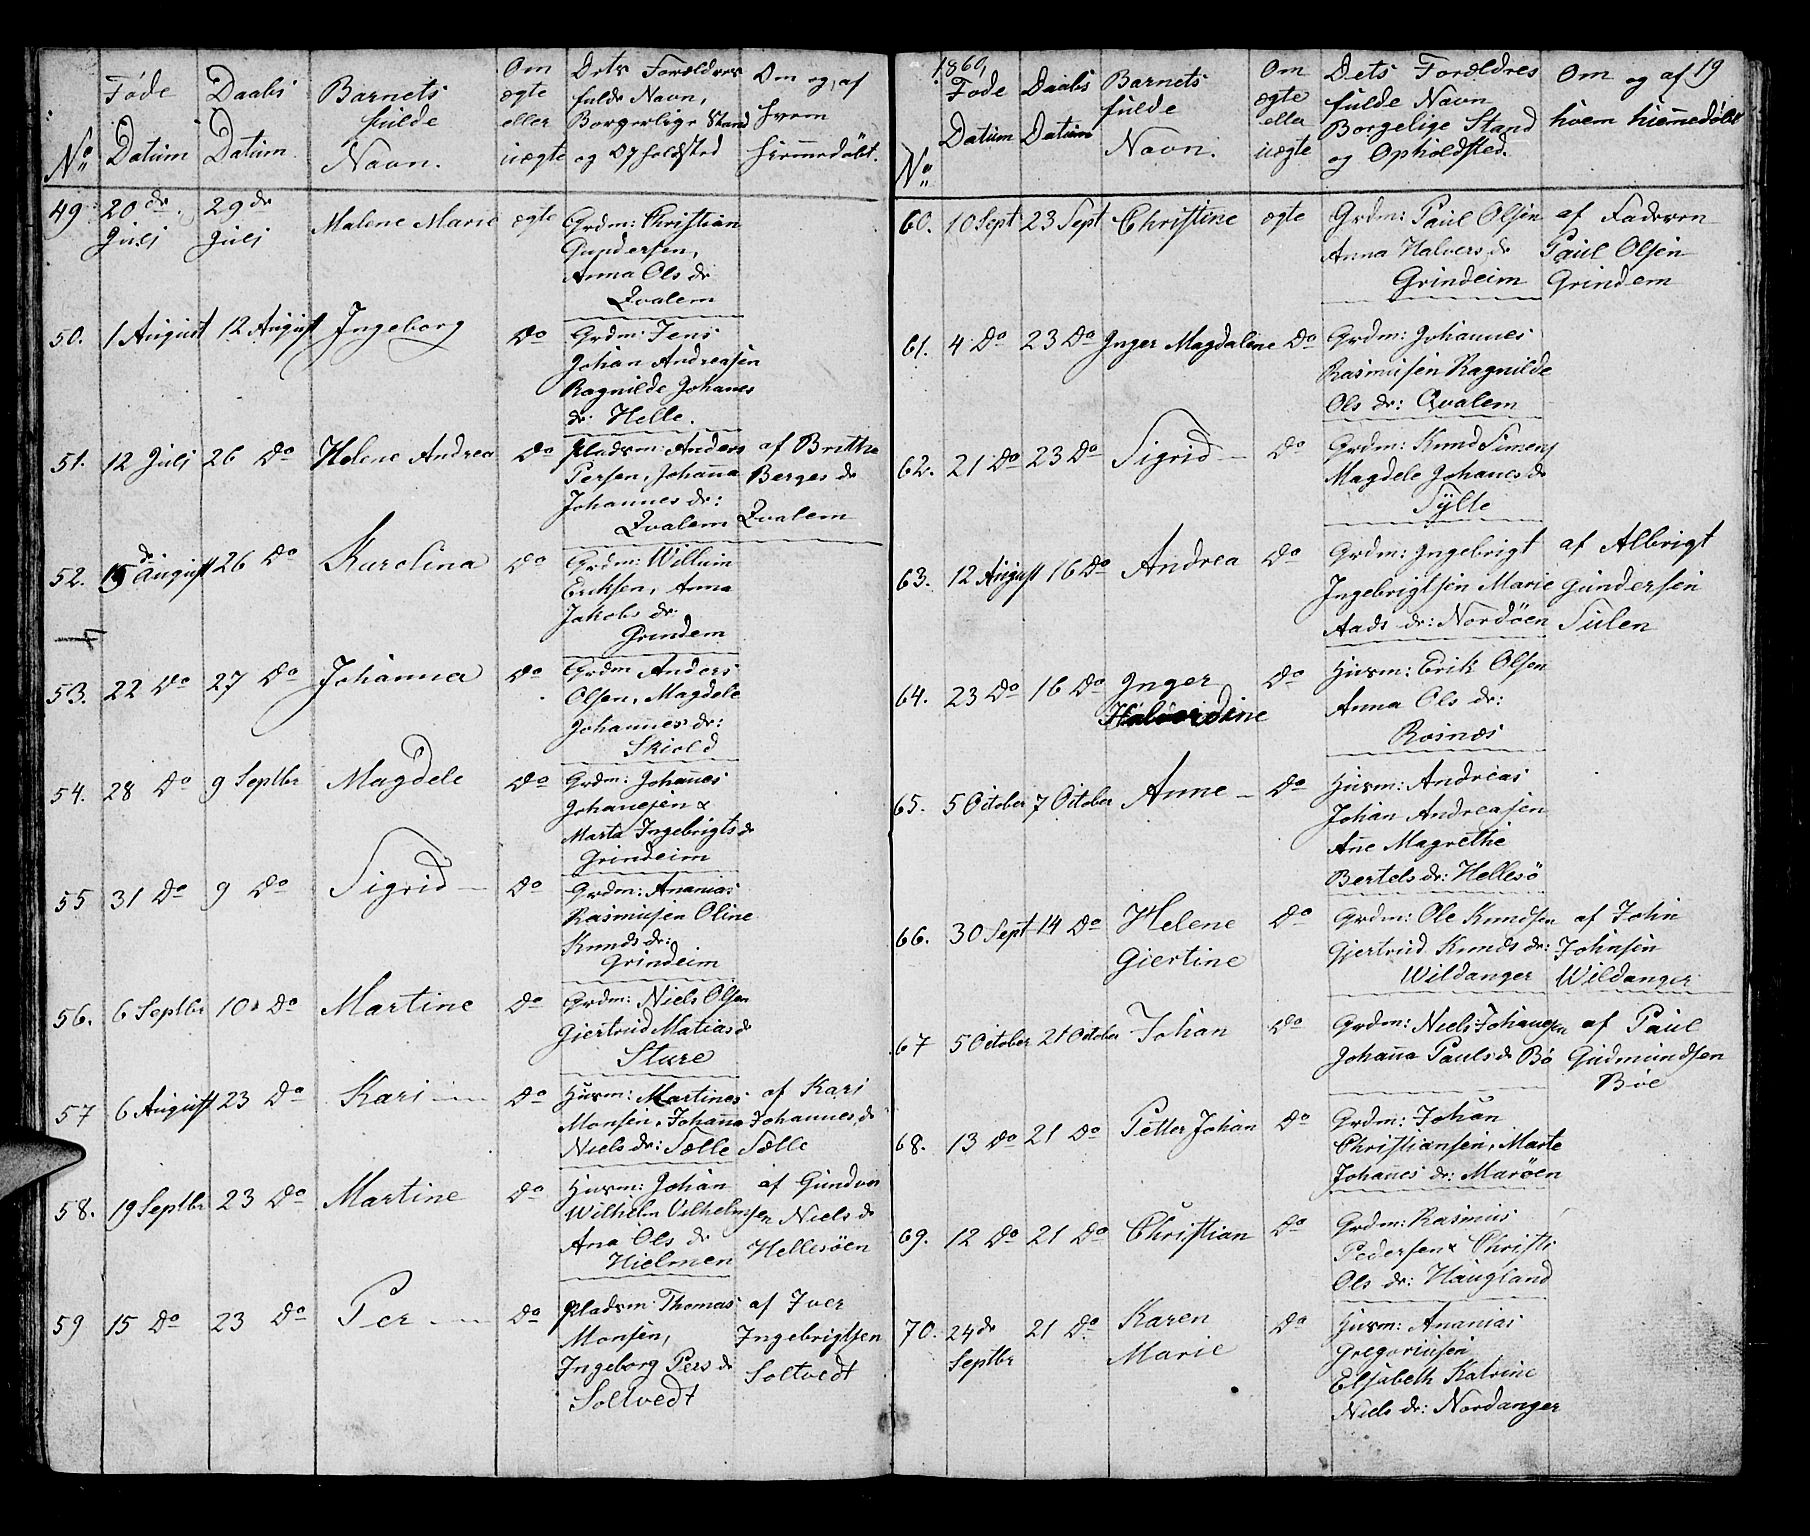 No
Føde
Datum
Daabs
Datum.
Barnets
fulde
Navn.
Om
ægte
eller
uægte
Dets Forældres
fulde Navn,
Borgerlige Stand
og Opholdsted
Om og, af
hvem
hiemmedøbt.
49. 20de Juli 29de Juli Malene Marie ægte
Grdm: Christian
Gundersen,
Anna Ols dr
Qvalem
50. 1 August 12 August Ingeborg Do
Grdm: Jens
Johan Andreasen
Ragnilde Johanes
dr: Helle.
51. 12 Juli 26 Do Helene Andrea Do
Pladsm: Anders
Persen, Johanna
Johannes dr:
Qvalem
af Brithe
Berges dr
Qvalem
52. 15de August 26 Do Karolina Do
Grdm: Willum
Eriksen, Anna
Jakobs dr
Grindem
53. 22 Do 27 Do Johanna Do
Grdm Anders
Olsen, Magdele
Johannes dr:
Skiold
54. 28 Do 9 Septbr Magdele Do
Grdm: Johanes
Johanesen &
Marta Ingebrigts dr
Grindeim
55 31 Do 9 Do Sigrid Do
Grdm: Ananias
Rasmusen Oline
Knuds dr:
Grindeim
56. 6 Septbr 10 Do Martine Do
Grdm: Niels Olsen
Gjertrud Matias dr
Sture
57 6 August 23 Do Kari Do
Husm: Martines
Monsen, Johanna
Niels dr: Sælle
af Kari
Johannes dr
Sælle
58. 19 Septbr 23 Do Martine Do
Husm: Johan
Wilhelm Vilhelmsen
Ana Ols dr
Hielmen
af Gundvor
Niels dr
Hellesøen
59 15 Do 23 Do Per Do
Pladsm: Thomas
Monsen,
Ingeborg Pers dr
Soltvedt
af Iver
Ingebrigtsen
Soltvedt
1860, 19
No
Føde
Datum
Daabs
Datum
Barnets
fulde
Navn.
Om
ægte
eller
uægte
Dets Forældres
fulde Navn
Borgelige Stand
og Opholdsted.
Om og af
hvem hiemedøbt
60. 10 Sept 23 Sept Christine ægte
Grdm: Paul Olsen
Anna Halvers dr
Grindeim
af Faderen
Paul Olsen
Grindem
61. 4 Do 23 Do Inger Magdalene Do
Grdm: Johannes
Rasmusen Ragnilde
Ols dr: Qvalem
62. 21 Do 23 Do Sigrid Do
Grdm: Knud Simens
Magdele Johanes dr
Sylte
63. 12 August 16 Do Andrea Do
Grdm: Ingebrigt
Ingebrigtsen Marie
Aads dr: Nordøen
af Albrigt
Gundersen
Sulen
64. 23 Do 16 Do Inger
Halverdine Do
Husm: Erik Olsen
Anna Ols dr:
Rosnæs
65. 5 October 7 October Anne Do
Husm: Andreas
Johan Andreasen
Ane Magrethe
Bertels dr: Hellesö
66. 30 Sept 14 Do Helene
Giertine Do
Grdm: Ole Knudsen
Gjertrud Knuds dr:
Wildanger
af John
Johnsen
Wildanger
67 5 October 21 October Johan Do
Grdm: Niels Johanesen
Johana Pauls dr Bö
af Paul
Gudmundsen
Böe
68. 13 Do 21 Do Petter Johan Do
Grdm: Johan
Christiansen, Marte
Johanes dr: Marøen
69. 12 Do 21 Do Christian Do
Grdm: Rasmus
Pedersen & Christi
Ols dr: Haugland
70. 24de Septbr 21 Do Karen
Marie Do
Husm: Ananias
Gregoriusen
Elisabeth Katrine
Niels dr: Nordanger